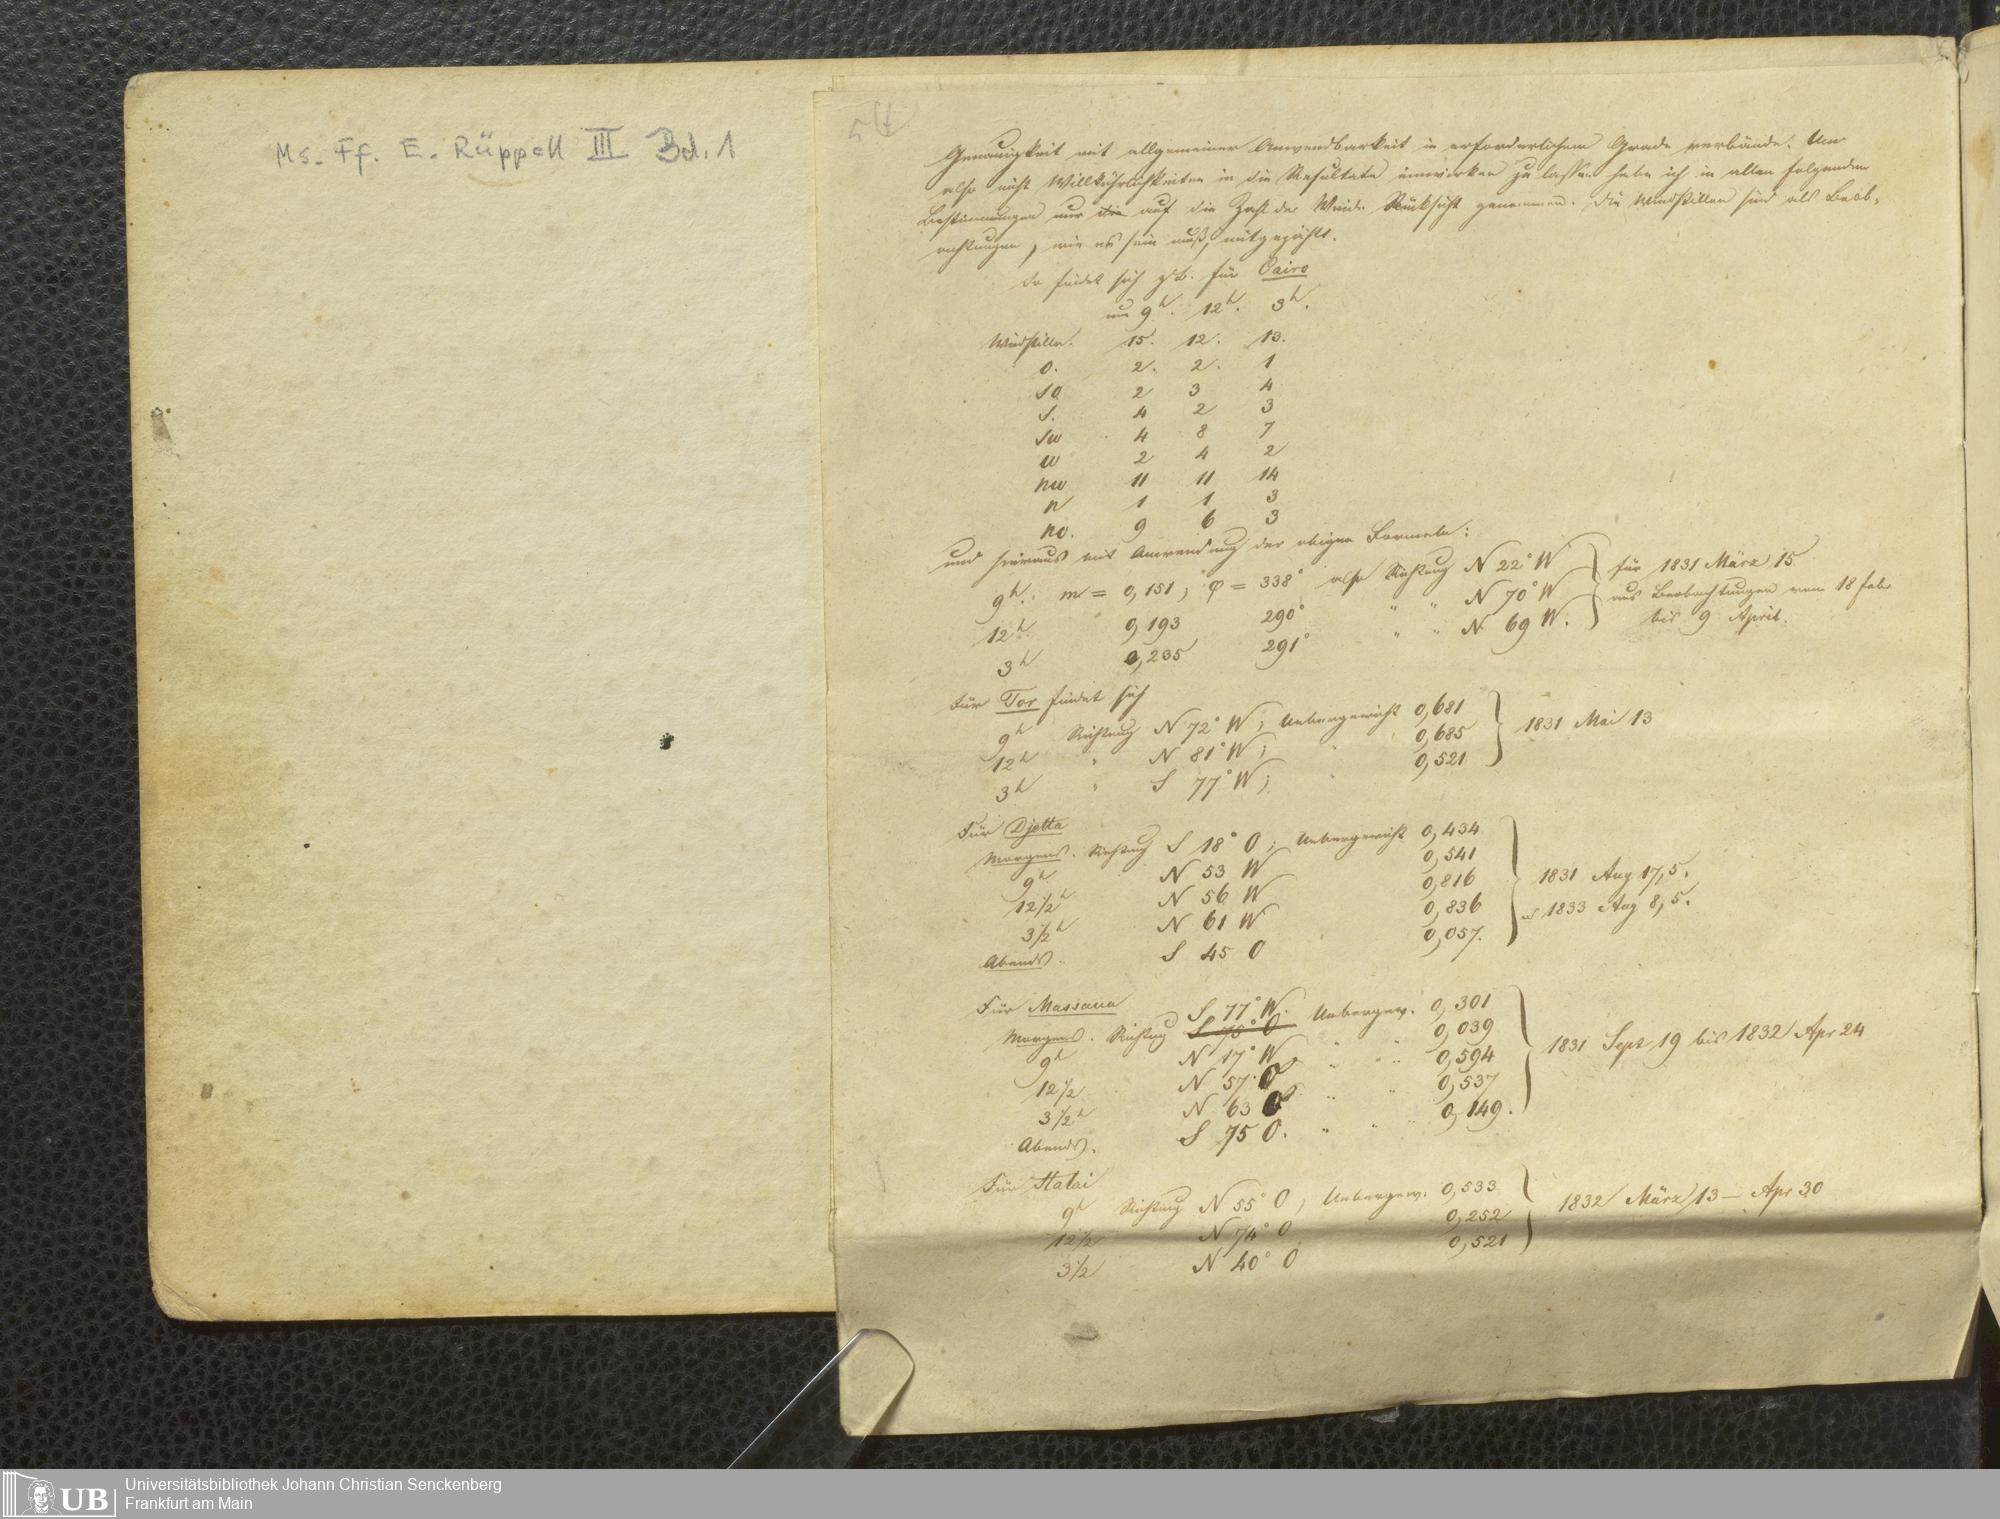 Ms. Ff. E. Rüppell III Bd. 1
Genauigkeit mit allgemeiner Anwendbarkeit in erforderlichem Grade verbände. Um
also nicht Willkührlichkeiten in die Resultate einwirken zu lassen habe ich in allen folgenden
Bestimmungen nur die auf die Zahl der Winde Rücksicht genommen. Die Windstillen sind als Beob-
achtungen, wie es sein muß, mitgezählt.
So findet sich z.B. für Cairo
um 9h. 12h. 3h.
Windstille. 15. 12. 13.
O. 2. 2. 1
SO 2 3 4
S. 4 2 3
SW 4 8 7
W 2 4 2
NW 11 11 14
N 1 1 3
NO. 9 6 3
und hieraus mit Anwendung der obigen Formeln:
9h. m = 0,151; φ = 338° also Richtung N 22° W
12h 0,193 290° " " N 70° W
3h 0,235 291° " " N 69 W.
für 1831 März 15
aus Beobachtungen vom 18 Feb.
bis 9 April.
Für Tor findet sich
9h Richtung N 72° W; Uebergewicht 0,681
12h " N 81° W; " 0,685
3h " S 77° W; " 0,521
1831 Mai 13
Für Djetta
Morgens. Richtung S 18° O; Uebergewicht 0,434
9h N 53 W 0,541
12 1/2h N 56 W 0,816
3 1/2h N 61 W 0,836
Abends. S 45 O 0,057.
1831 Aug 17,5.
1833 Aug 8,5.
Für Massaua
S 77° W.
Morgens. Richtung S 78° O Uebergew. 0,301
9h N 17° W " " 0,039
12 1/2 N 57° O 0,594
3 1/2h N 63 O " " 0,537
Abends. S 75 O. " " " 0,149.
1831 Sept 19 bis 1832 Apr 24
Für Halai
9h Richtung N 55° O, Uebergew. 0,533
12 1/2 N 74° O 0,252
3 1/2 N 40° O 0,521
1832 März 13 – Apr 30
UB
Universitätsbibliothek Johann Christian Senckenberg
Frankfurt am Main